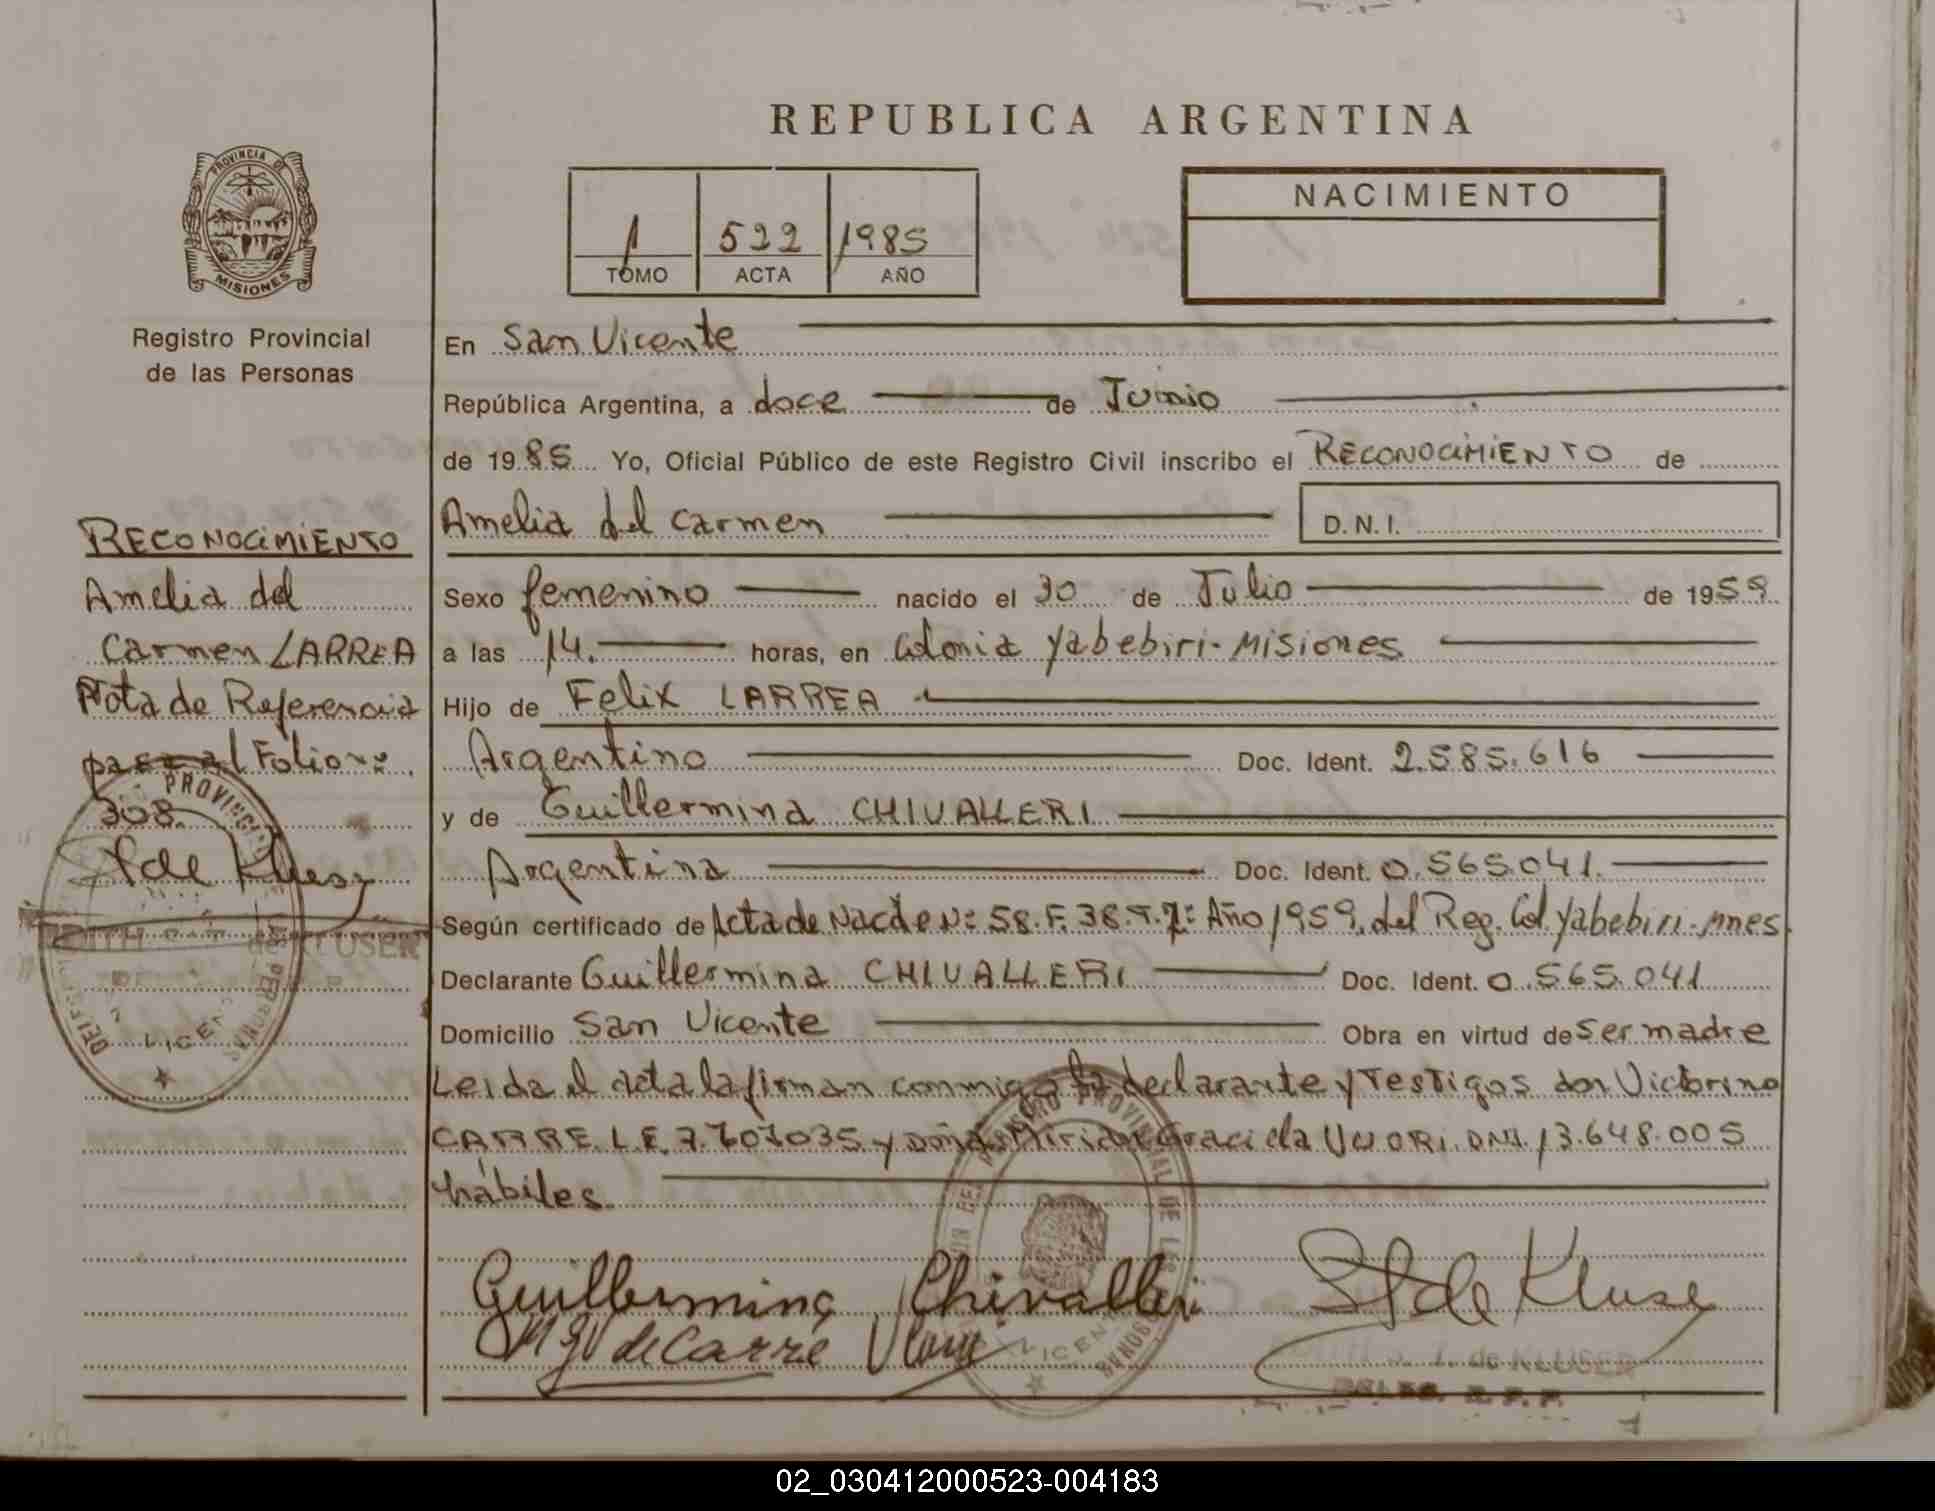 REPUBLICA ARGENTINA
PROVINCIA DE
MISIONES
Registro Provincial
de las Personas
1 522 1985
TOMO ACTA AÑO
NACIMIENTO
En San Vicente
República Argentina, a doce de Junio
de 1985 Yo, Oficial Público de este Registro Civil inscribo el RECONOCIMIENTO de
Amelia del Carmen D.N.I.
Sexo femenino nacido el 30 de Julio de 1959
a las 14. horas, en Colonia Yabebiri-Misiones
Hijo de Felix LARREA
Argentino Doc. Ident. 2.585.616
y de Guillermina CHIVALLERI
Argentina Doc. Ident. 0.565.041.
Según certificado de Acta de Nac de Nº 58.F.38.T.1º Año 1959, del Reg. Col. Yabebiri-Mnes.
Declarante Guillermina CHIVALLERI Doc. Ident. 0.565.041
Domicilio San Vicente Obra en virtud de ser madre
Leida el acta la firman conmigo la declarante y Testigos don Victorino
CARRE L.E. 7.707035 y doña Miriam Graciela DNI. 13.648.005
hábiles.
Guillermina Chivalleri
de Carre
de Kluse
de KLUSER
RECONOCIMIENTO
Amelia del
Carmen LARREA
Nota de Referencia
pasa al Folio Nº
308.
de KLUSER
PROVINCIAL
02_030412000523-004183